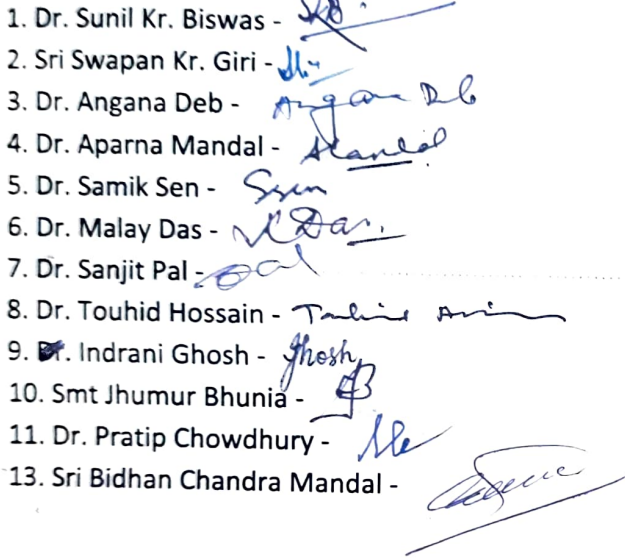 1. Dr. Sunil Kr. Biswas -
2. Sri Swapan Kr. Giri -
3. Dr. Angana Deb - Angana Deb
4. Dr. Aparna Mandal - AMandal
5. Dr. Samik Sen - SSen
6. Dr. Malay Das - M Das.
7. Dr. Sanjit Pal - Pal
8. Dr. Touhid Hossain -
9. Dr. Indrani Ghosh - Ghosh
10. Smt Jhumur Bhunia -
11. Dr. Pratip Chowdhury -
13. Sri Bidhan Chandra Mandal -